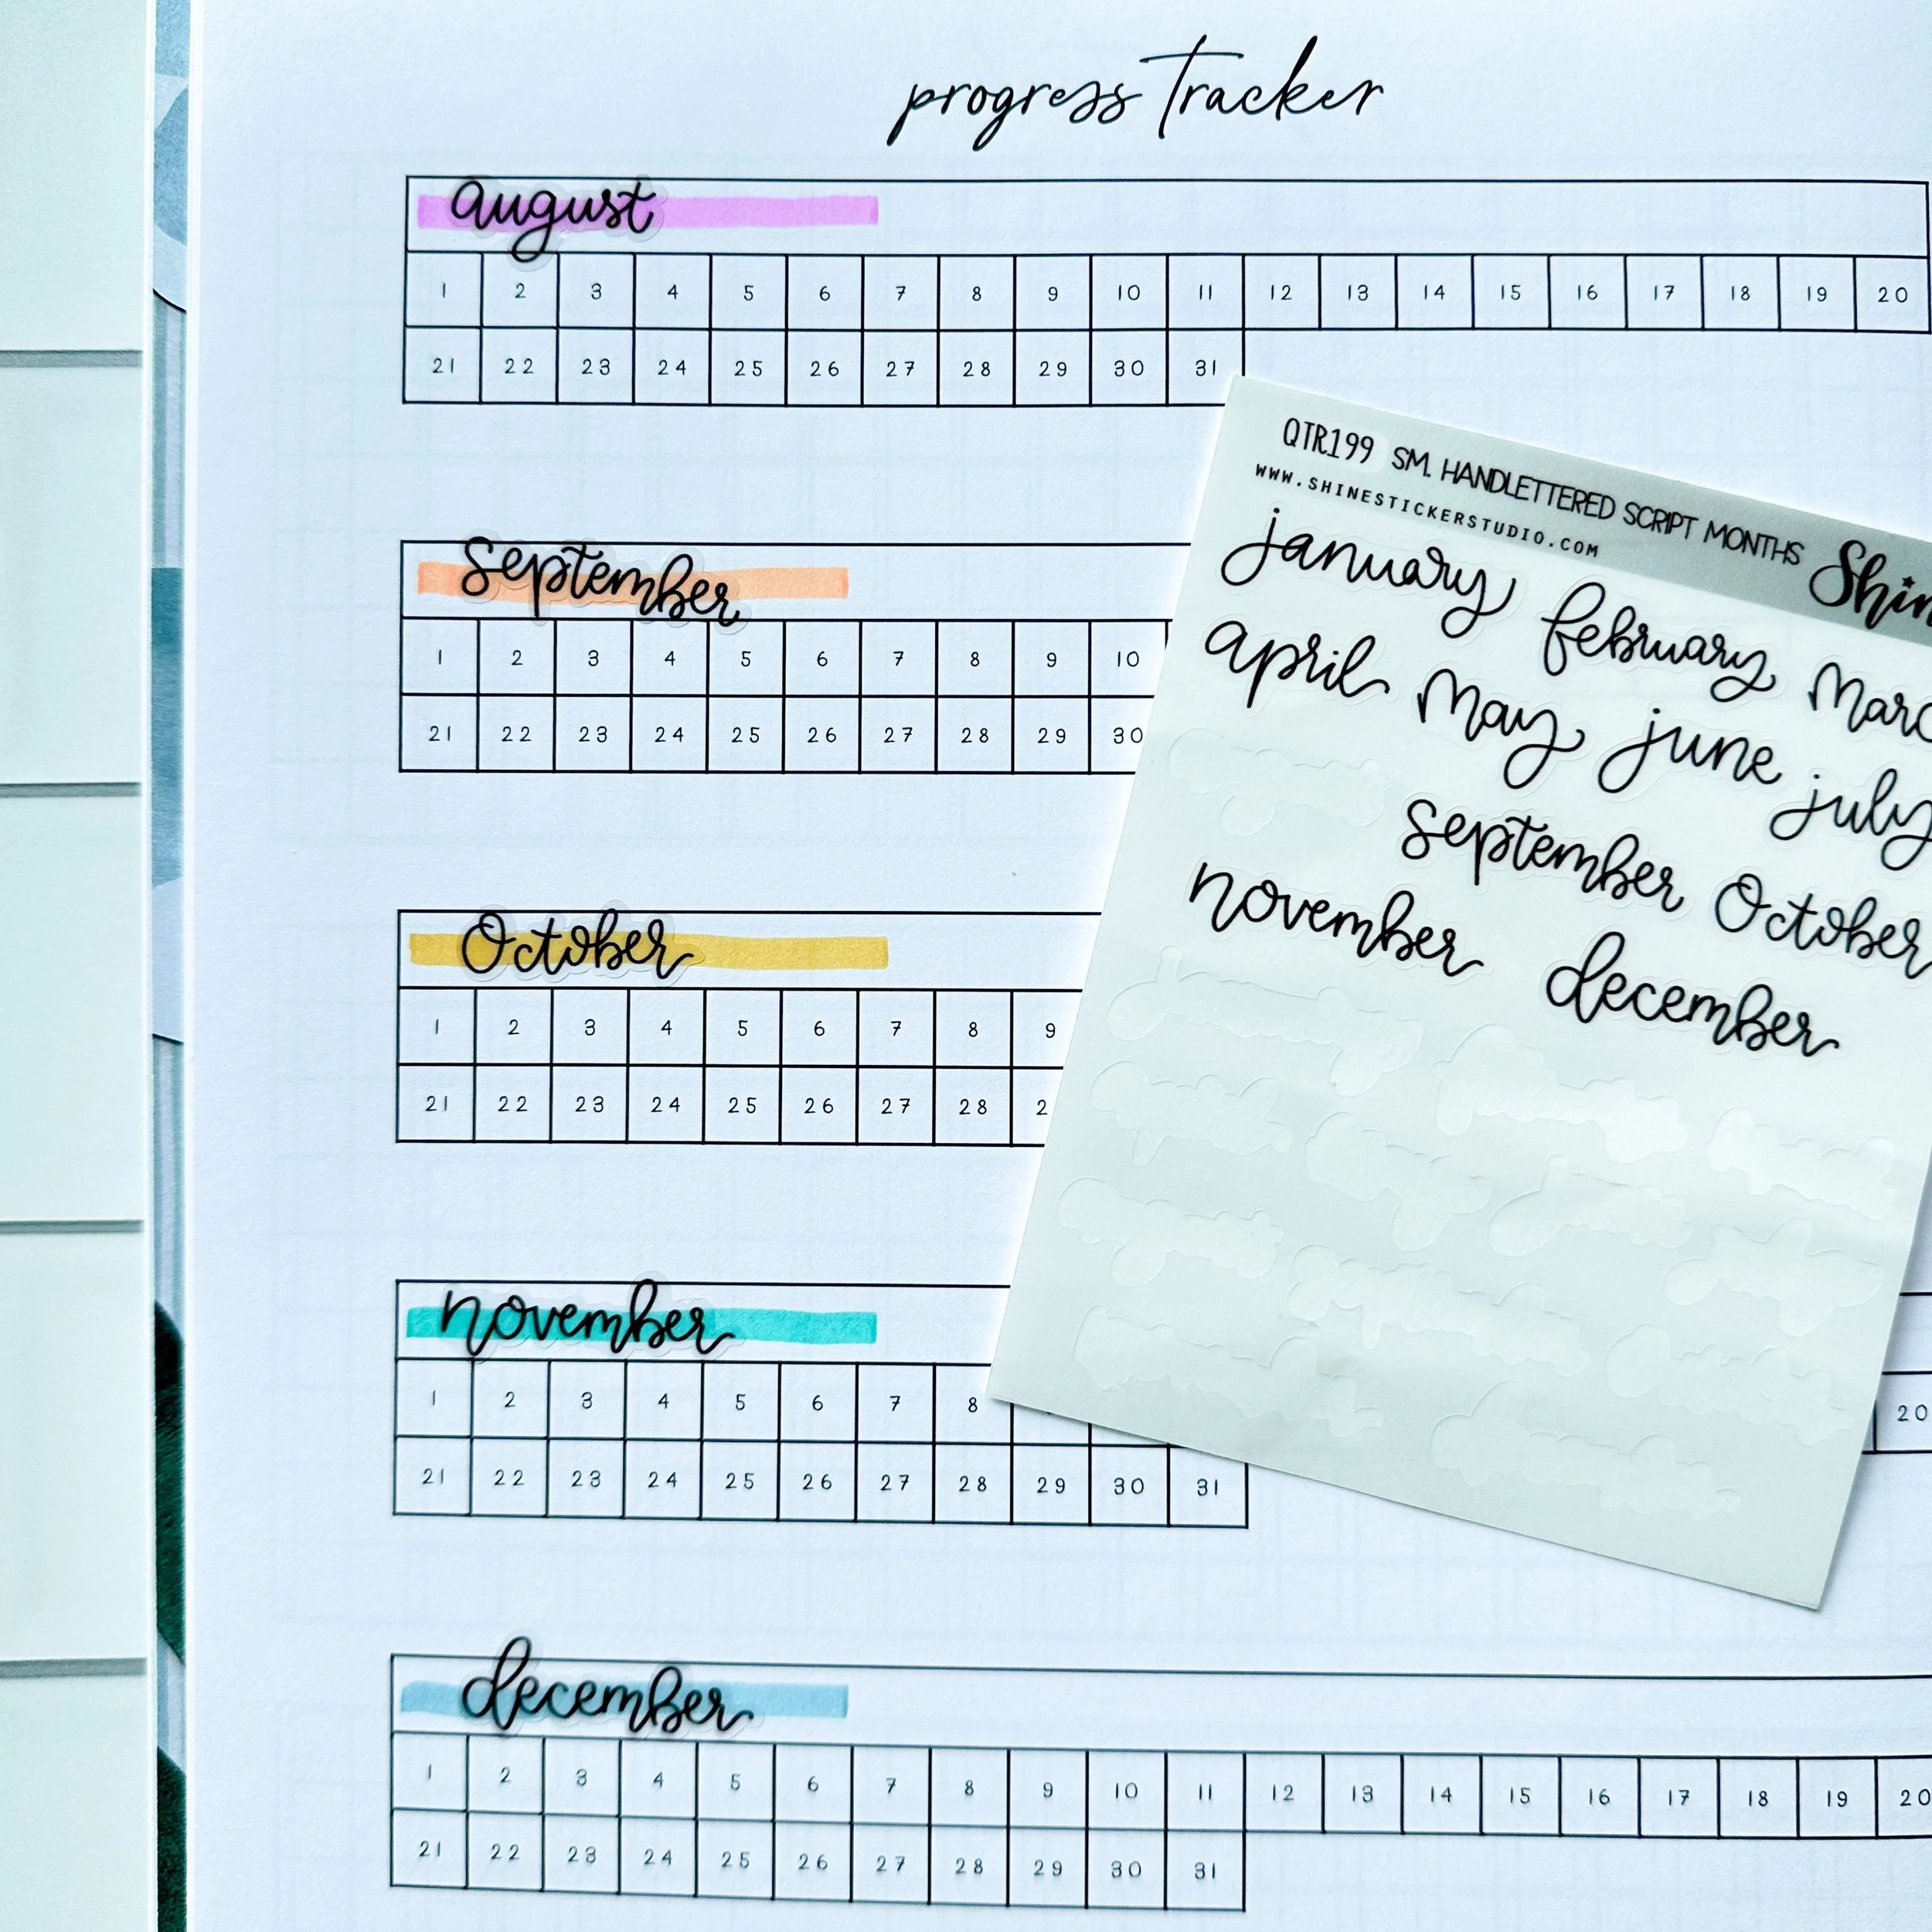 progress Tracker
august
1 2 3 4 5 6 7 8 9 10 11 12 13 14 15 16 17 18 19 20
21 22 23 24 25 26 27 28 29 30 31
QTR199 SM. HANDLETTERED SCRIPT MONTHS Shin
WWW.SHINESTICKERSTUDIO.COM
january february Marc
april May june july
september October
november december
september
1 2 3 4 5 6 7 8 9 10
21 22 23 24 25 26 27 28 29 30
October
1 2 3 4 5 6 7 8 9
21 22 23 24 25 26 27 28 2
november
1 2 3 4 5 6 7 8 20
21 22 23 24 25 26 27 28 29 30 31
december
1 2 3 4 5 6 7 8 9 10 11 12 13 14 15 16 17 18 19 20
21 22 23 24 25 26 27 28 29 30 31